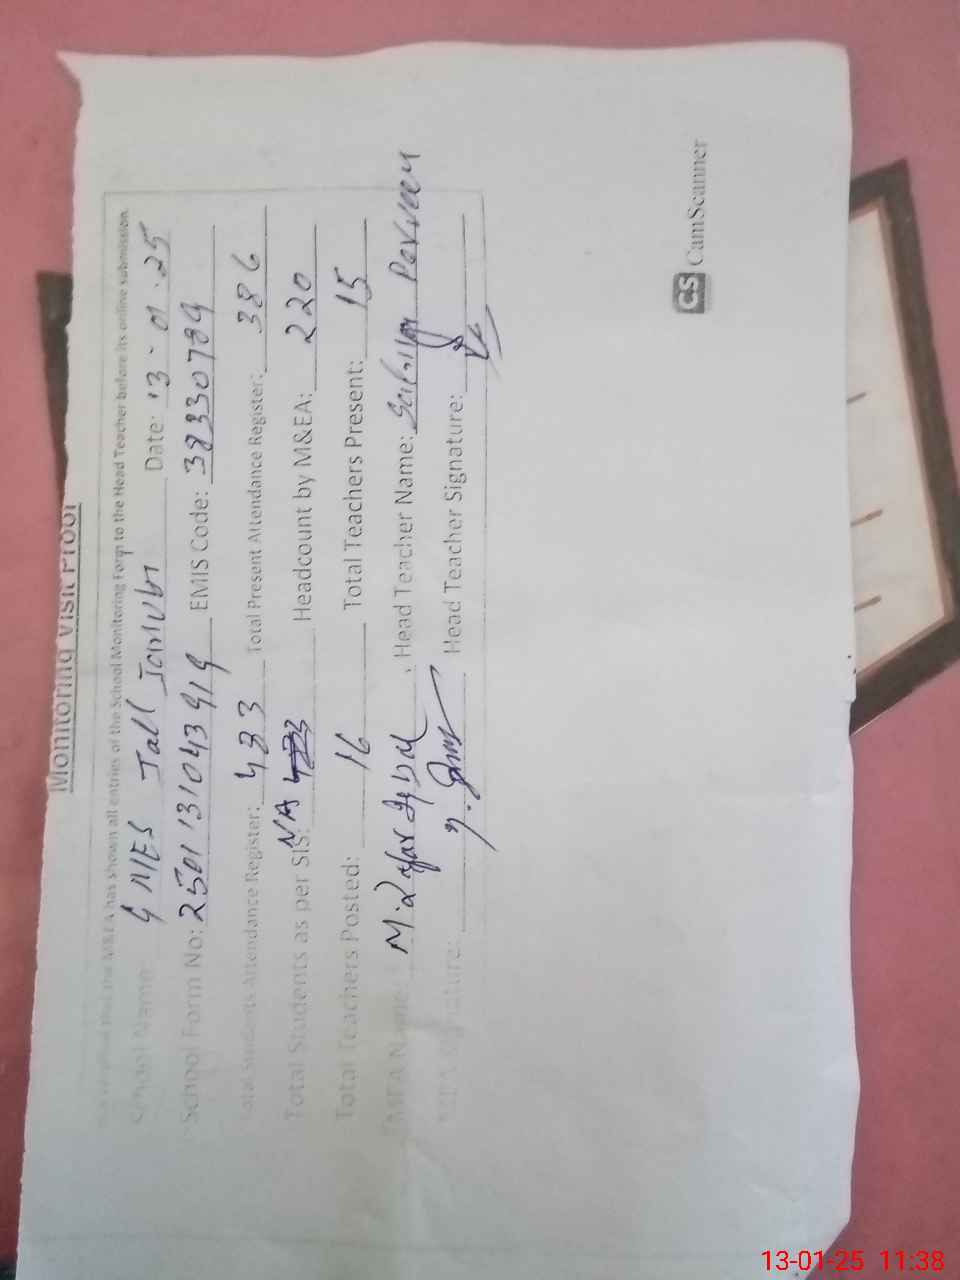 Monitoring Visit Proof
the M&EA has shown all entries of the School Monitoring Form to the Head Teacher before its online submission.
School Name: GMES Jall Janubi Date: 13-01-25
School Form No: 2501131043919 EMIS Code: 38330789
Total Students Attendance Register: 433 Total Present Attendance Register: 386
Total Students as per SIS: NA Headcount by M&EA: 220
Total Teachers Posted: 16 Total Teachers Present: 15
MEA Name: M. Zafar Iqbal, Head Teacher Name: Parveen
MEA Signature: Head Teacher Signature:
CS CamScanner
13-01-25 11:38